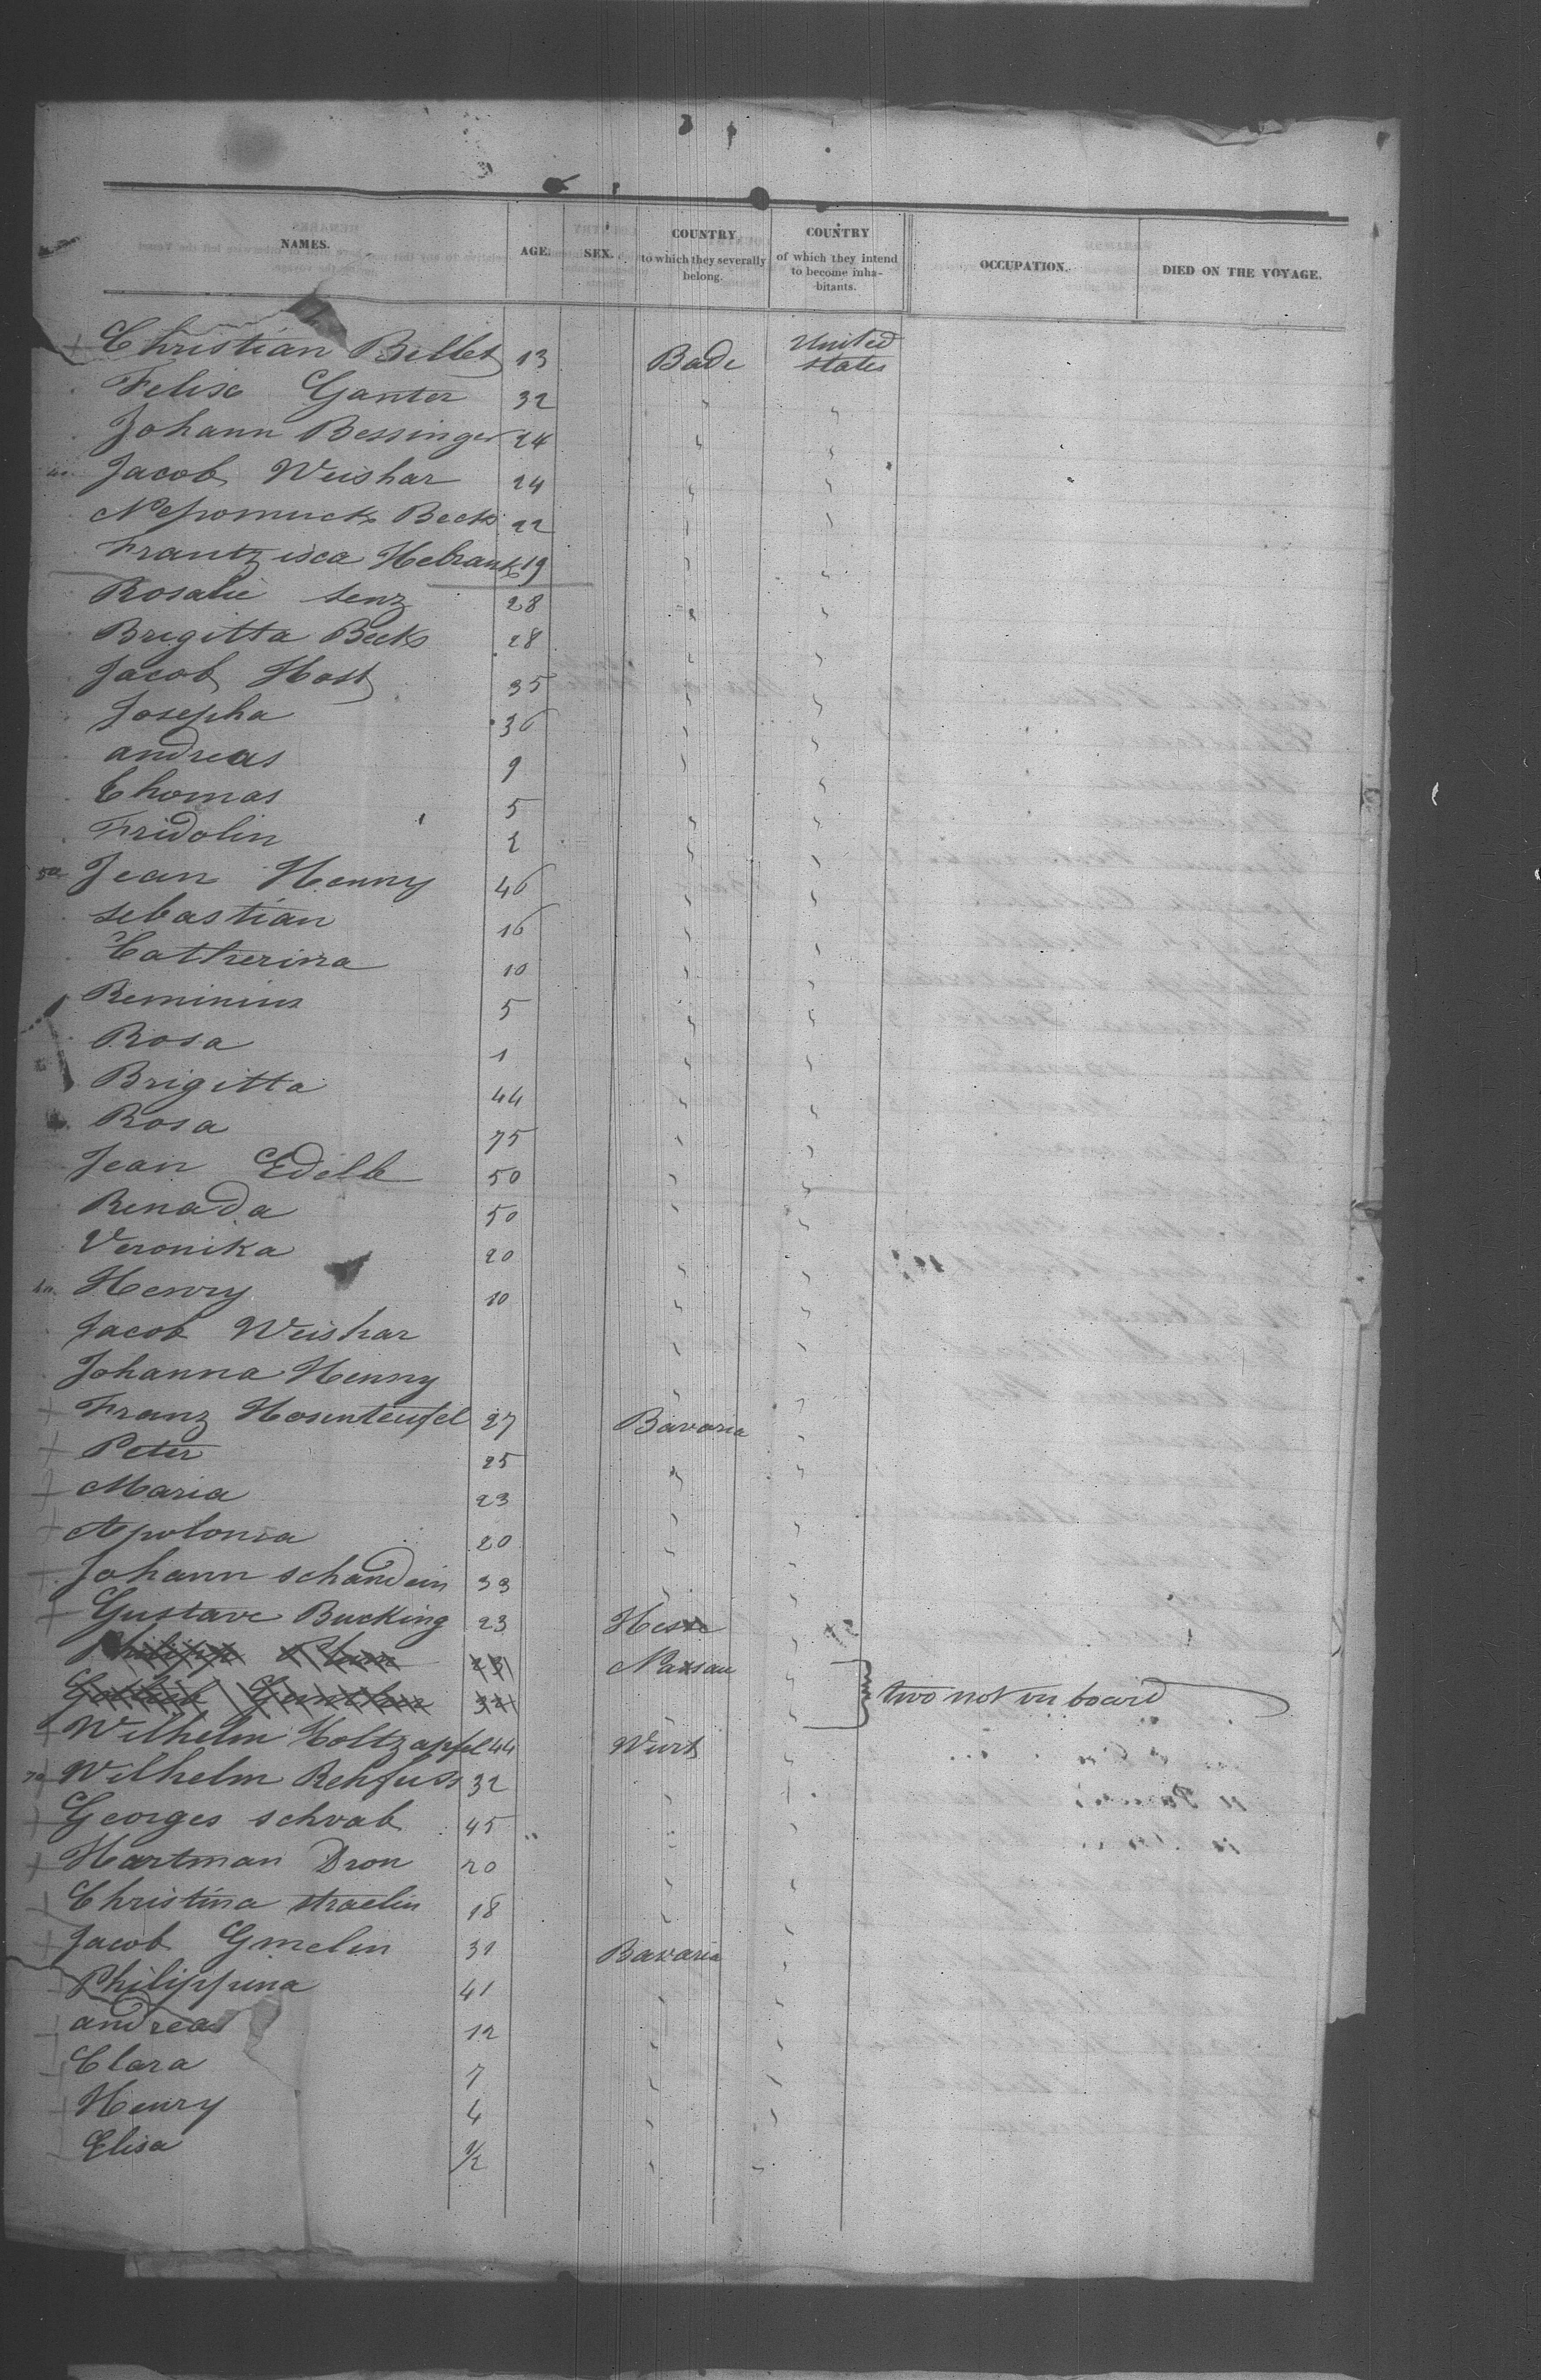 NAMES. AGE. SEX. COUNTRY to which they severally belong. COUNTRY of which they intend to become inha- bitants. OCCUPATION. DIED ON THE VOYAGE.
Christian Billet 13 Bade United states
Felix Ganter 32 " "
Johann Bessinger 24 " "
Jacob Weishar 24 " "
Nepomuck Beck 22 " "
Frantzisca Hebrank 19 " "
Rosalie senz 28 " "
Brigitta Beck 28 " "
Jacob Host 35 " "
Josepha 36 " "
andreas 9 " "
Thomas 5 " "
Fridolin 2 " "
50 Jean Henny 46 " "
sebastian 16 " "
Catherina 10 " "
Reminius 5 " "
Rosa 1 " "
Brigitta 44 " "
Rosa 75 " "
Jean Edelle 50 " "
Renada 50 " "
Veronika 20 " "
Henry 10 " "
Jacob Weishar " "
Johanna Henny " "
Franz Hosenteufel 27 Bavaria "
Peter 25 " "
Maria 23 " "
Apolonia 20 " "
Johann schandein 33 " "
Gustave Bucking 23 Hesse "
Philipp 23 Nassau "
Gottlieb 32 " " two not on board
Wilhelm Holtzapfel 44 Wurt "
70 Wilhelm Rehfuss 32 " "
Georges schvab 45 " "
Hartman Dron 20 " "
Christina straelin 18 " "
Jacob Gmelin 31 Bavaria "
Philippina 41 " "
andreas 12 " "
Clara 7 " "
Henry 4 " "
Elisa 1/2 " "